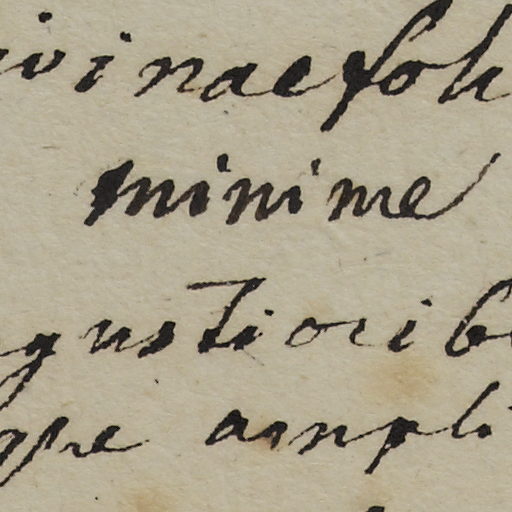 ivinae soli
minime
gustiorib
ope ampli